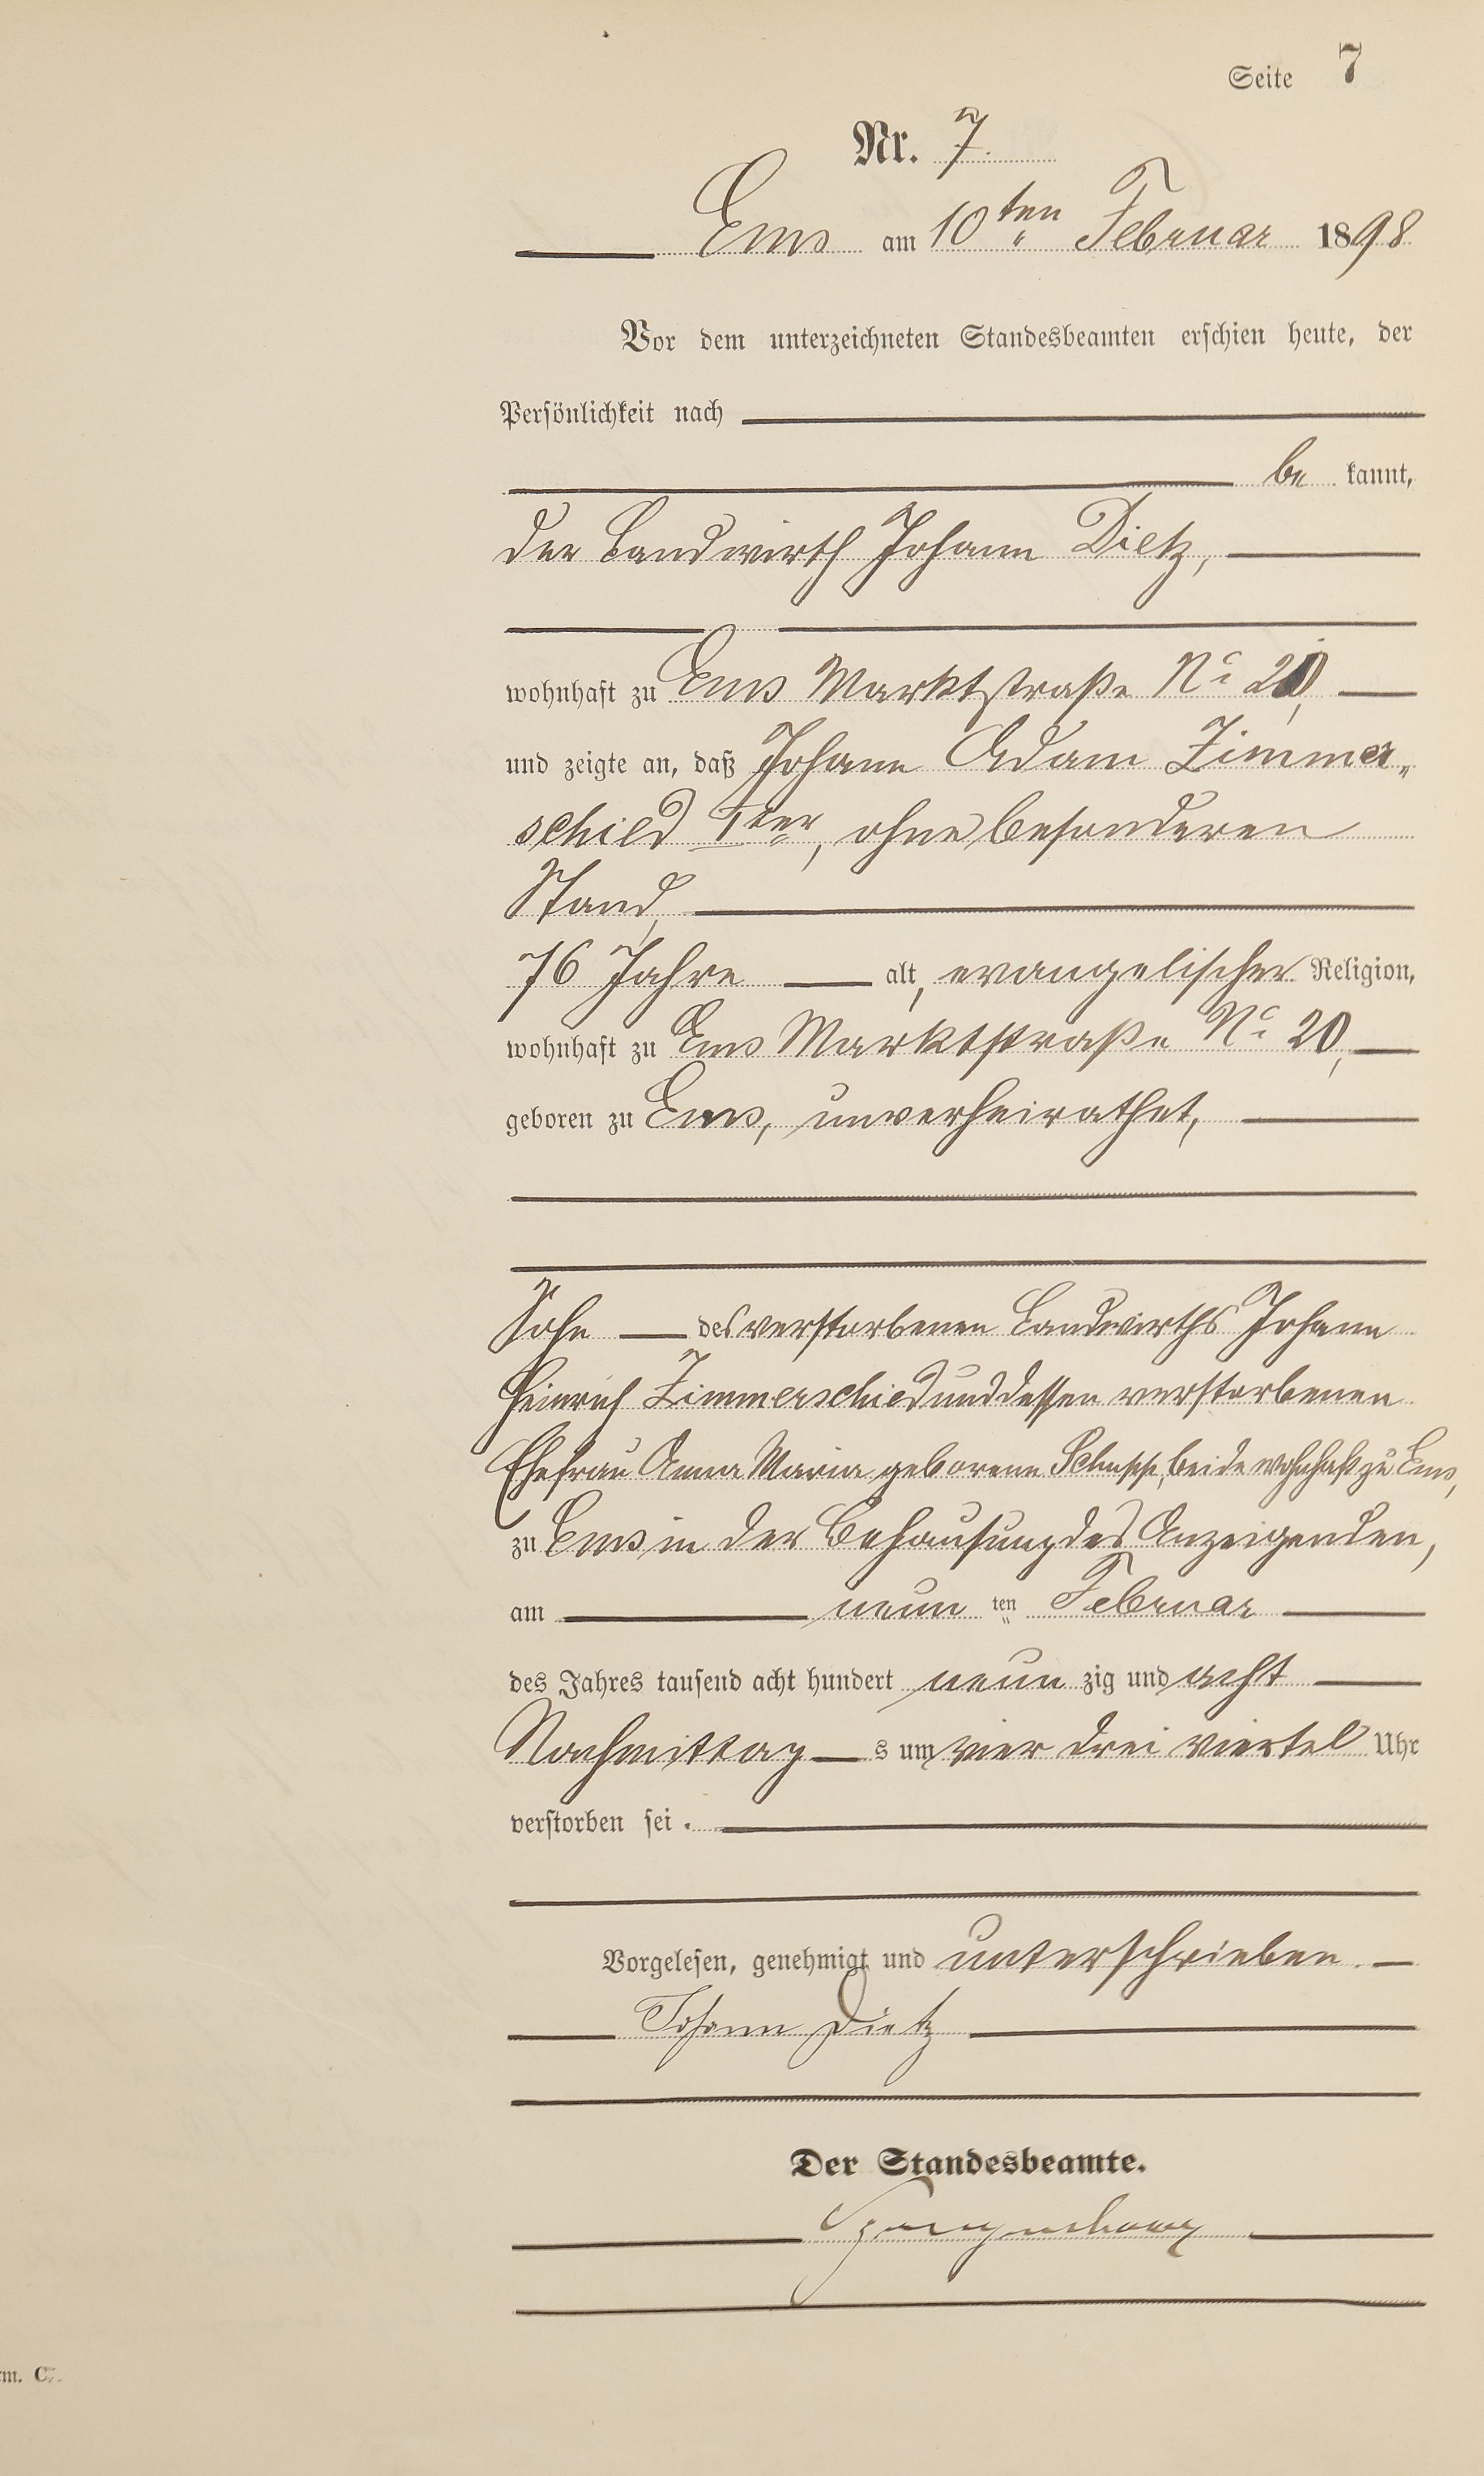 Seite 7
Nr. 7.
Ems am 10ten Februar 1898
Vor dem unterzeichneten Standesbeamten erschien heute, der
Persönlichkeit nach
be kannt,
der Landwirth Johann Dietz,
wohnhaft zu Ems Marktstraße No 20,
und zeigte an, daß Johann Adam Zimmer„
schied 1ter, ohne besonderen
Stand,
76 Jahre alt, evangelischer Religion,
wohnhaft zu Ems Marktstraße No 20,
geboren zu Ems, unverheirathet,
Sohn des verstorbenen Landwirths Johann
Heinrich Zimmerschied und dessen verstorbenen
Ehefrau Anna Maria geborene Schupp, beide wohnhaft zu Ems,
zu Ems in der Behausung des Anzeigenden,
am neun ten Februar
des Jahres tausend acht hundert neun zig und acht
Nachmittag s um vier drei viertel Uhr
verstorben sei.
Vorgelesen, genehmigt und unterschrieben.
Johann Dietz
Der Standesbeamte.
rm. C.